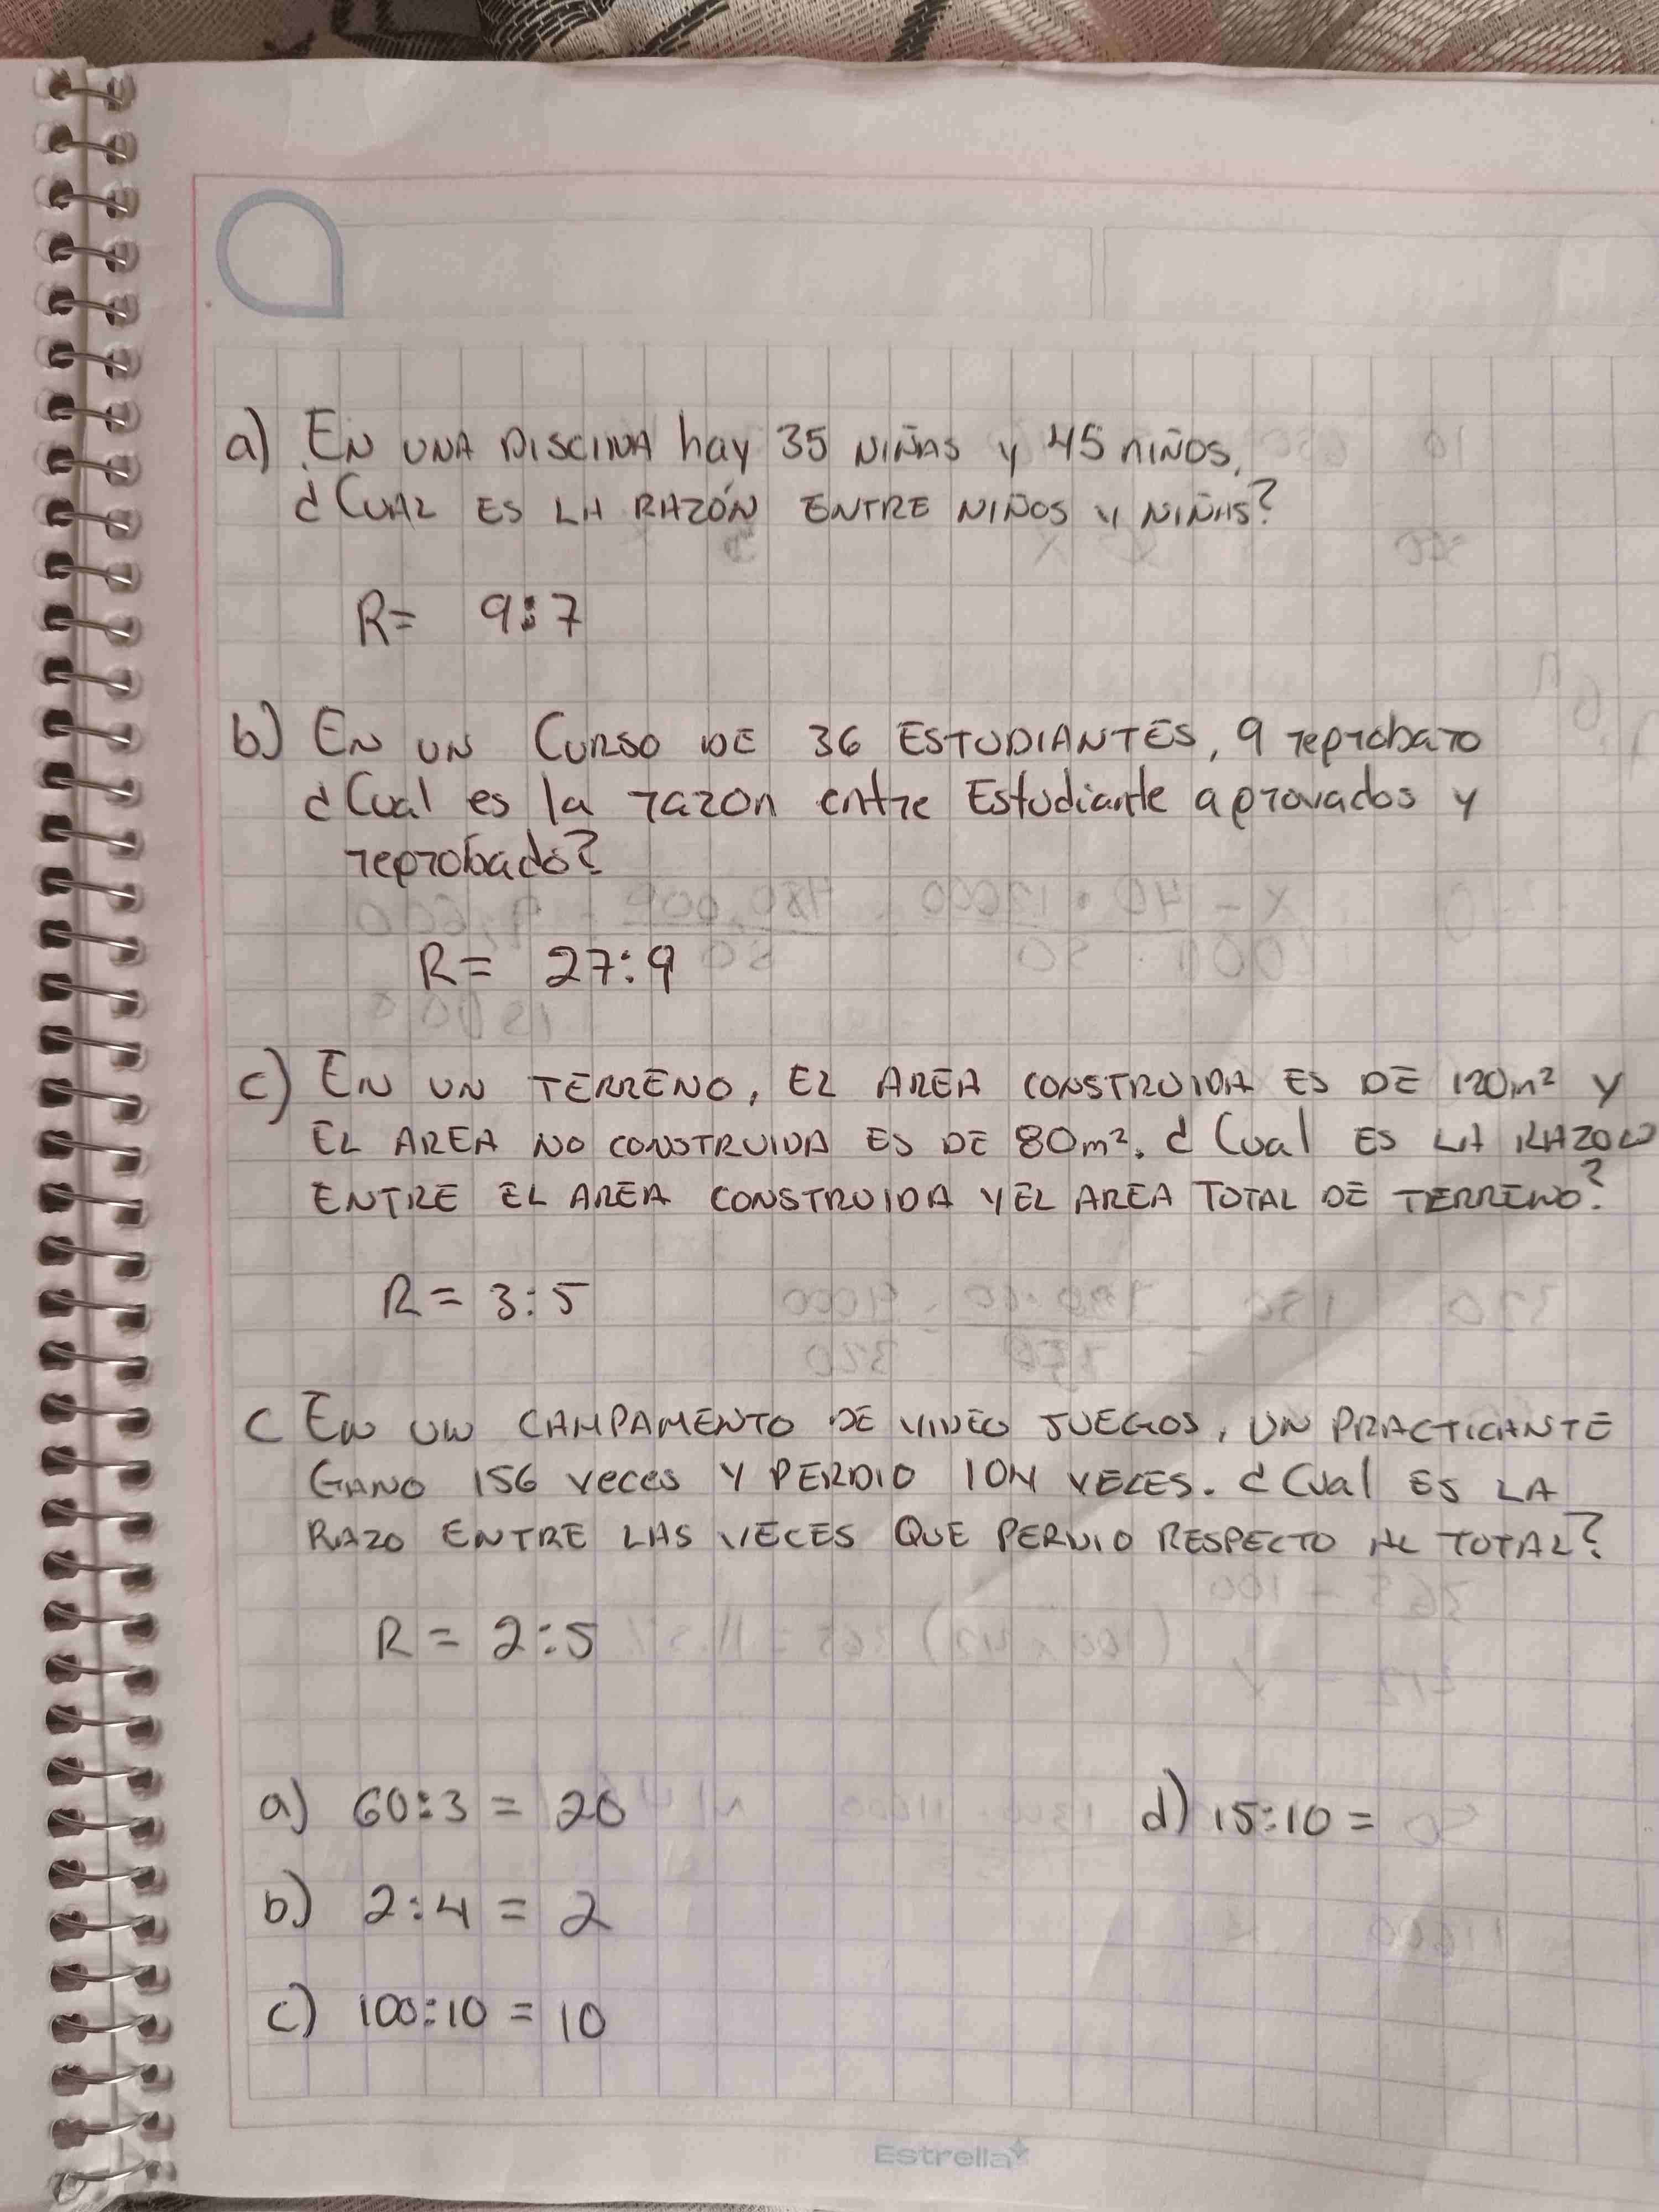 a) EN UNA PISCINA hay 35 NIÑAS y 45 NIÑOS,
¿CUAL ES LA RAZÓN ENTRE NIÑOS y NIÑAS?
R= 9:7
b) EN UN CURSO DE 36 ESTUDIANTES, 9 reprobaro
¿Cual es la razon entre Estudiante aprovados y
reprobado?
R= 27:9
c) EN UN TERRENO, EL AREA CONSTRUIDA ES DE 120m² y
EL AREA NO CONSTRUIDA ES DE 80m². ¿Cual ES LA RAZON
ENTRE EL AREA CONSTRUIDA Y EL AREA TOTAL DE TERRENO?
R = 3:5
C EN UN CAMPAMENTO DE VIDEO JUEGOS, UN PRACTICANTE
GANO 156 veces Y PERDIO 104 VECES. ¿Cual ES LA
RAZO ENTRE LAS VECES QUE PERDIO RESPECTO AL TOTAL?
R = 2:5
a) 60:3 = 20
d) 15:10 =
b) 2:4 = 2
c) 100:10 = 10
Estrella